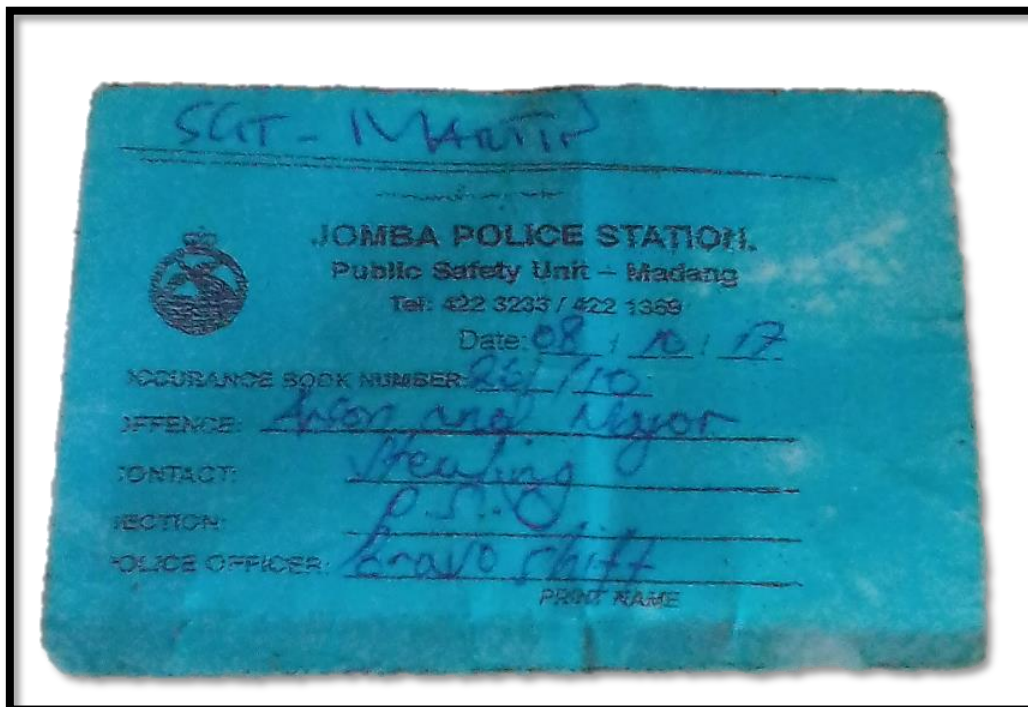 SGT - MARTIN
JOMBA POLICE STATION.
Public Safety Unit – Madang
Tel: 422 3233 / 422 1369
Date: 08 / 10 / 17
OCCURANCE BOOK NUMBER: /10
OFFENCE: Arson and Mayor
CONTACT: Stealing
SECTION: P.S.U
POLICE OFFICER: bravo shift
PRINT NAME